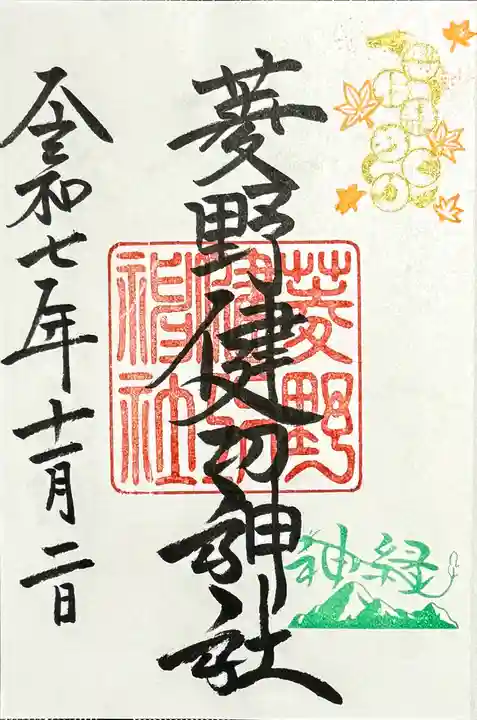 菱野健功神社
菱野健功神社
神縁
令和七年十一月二日